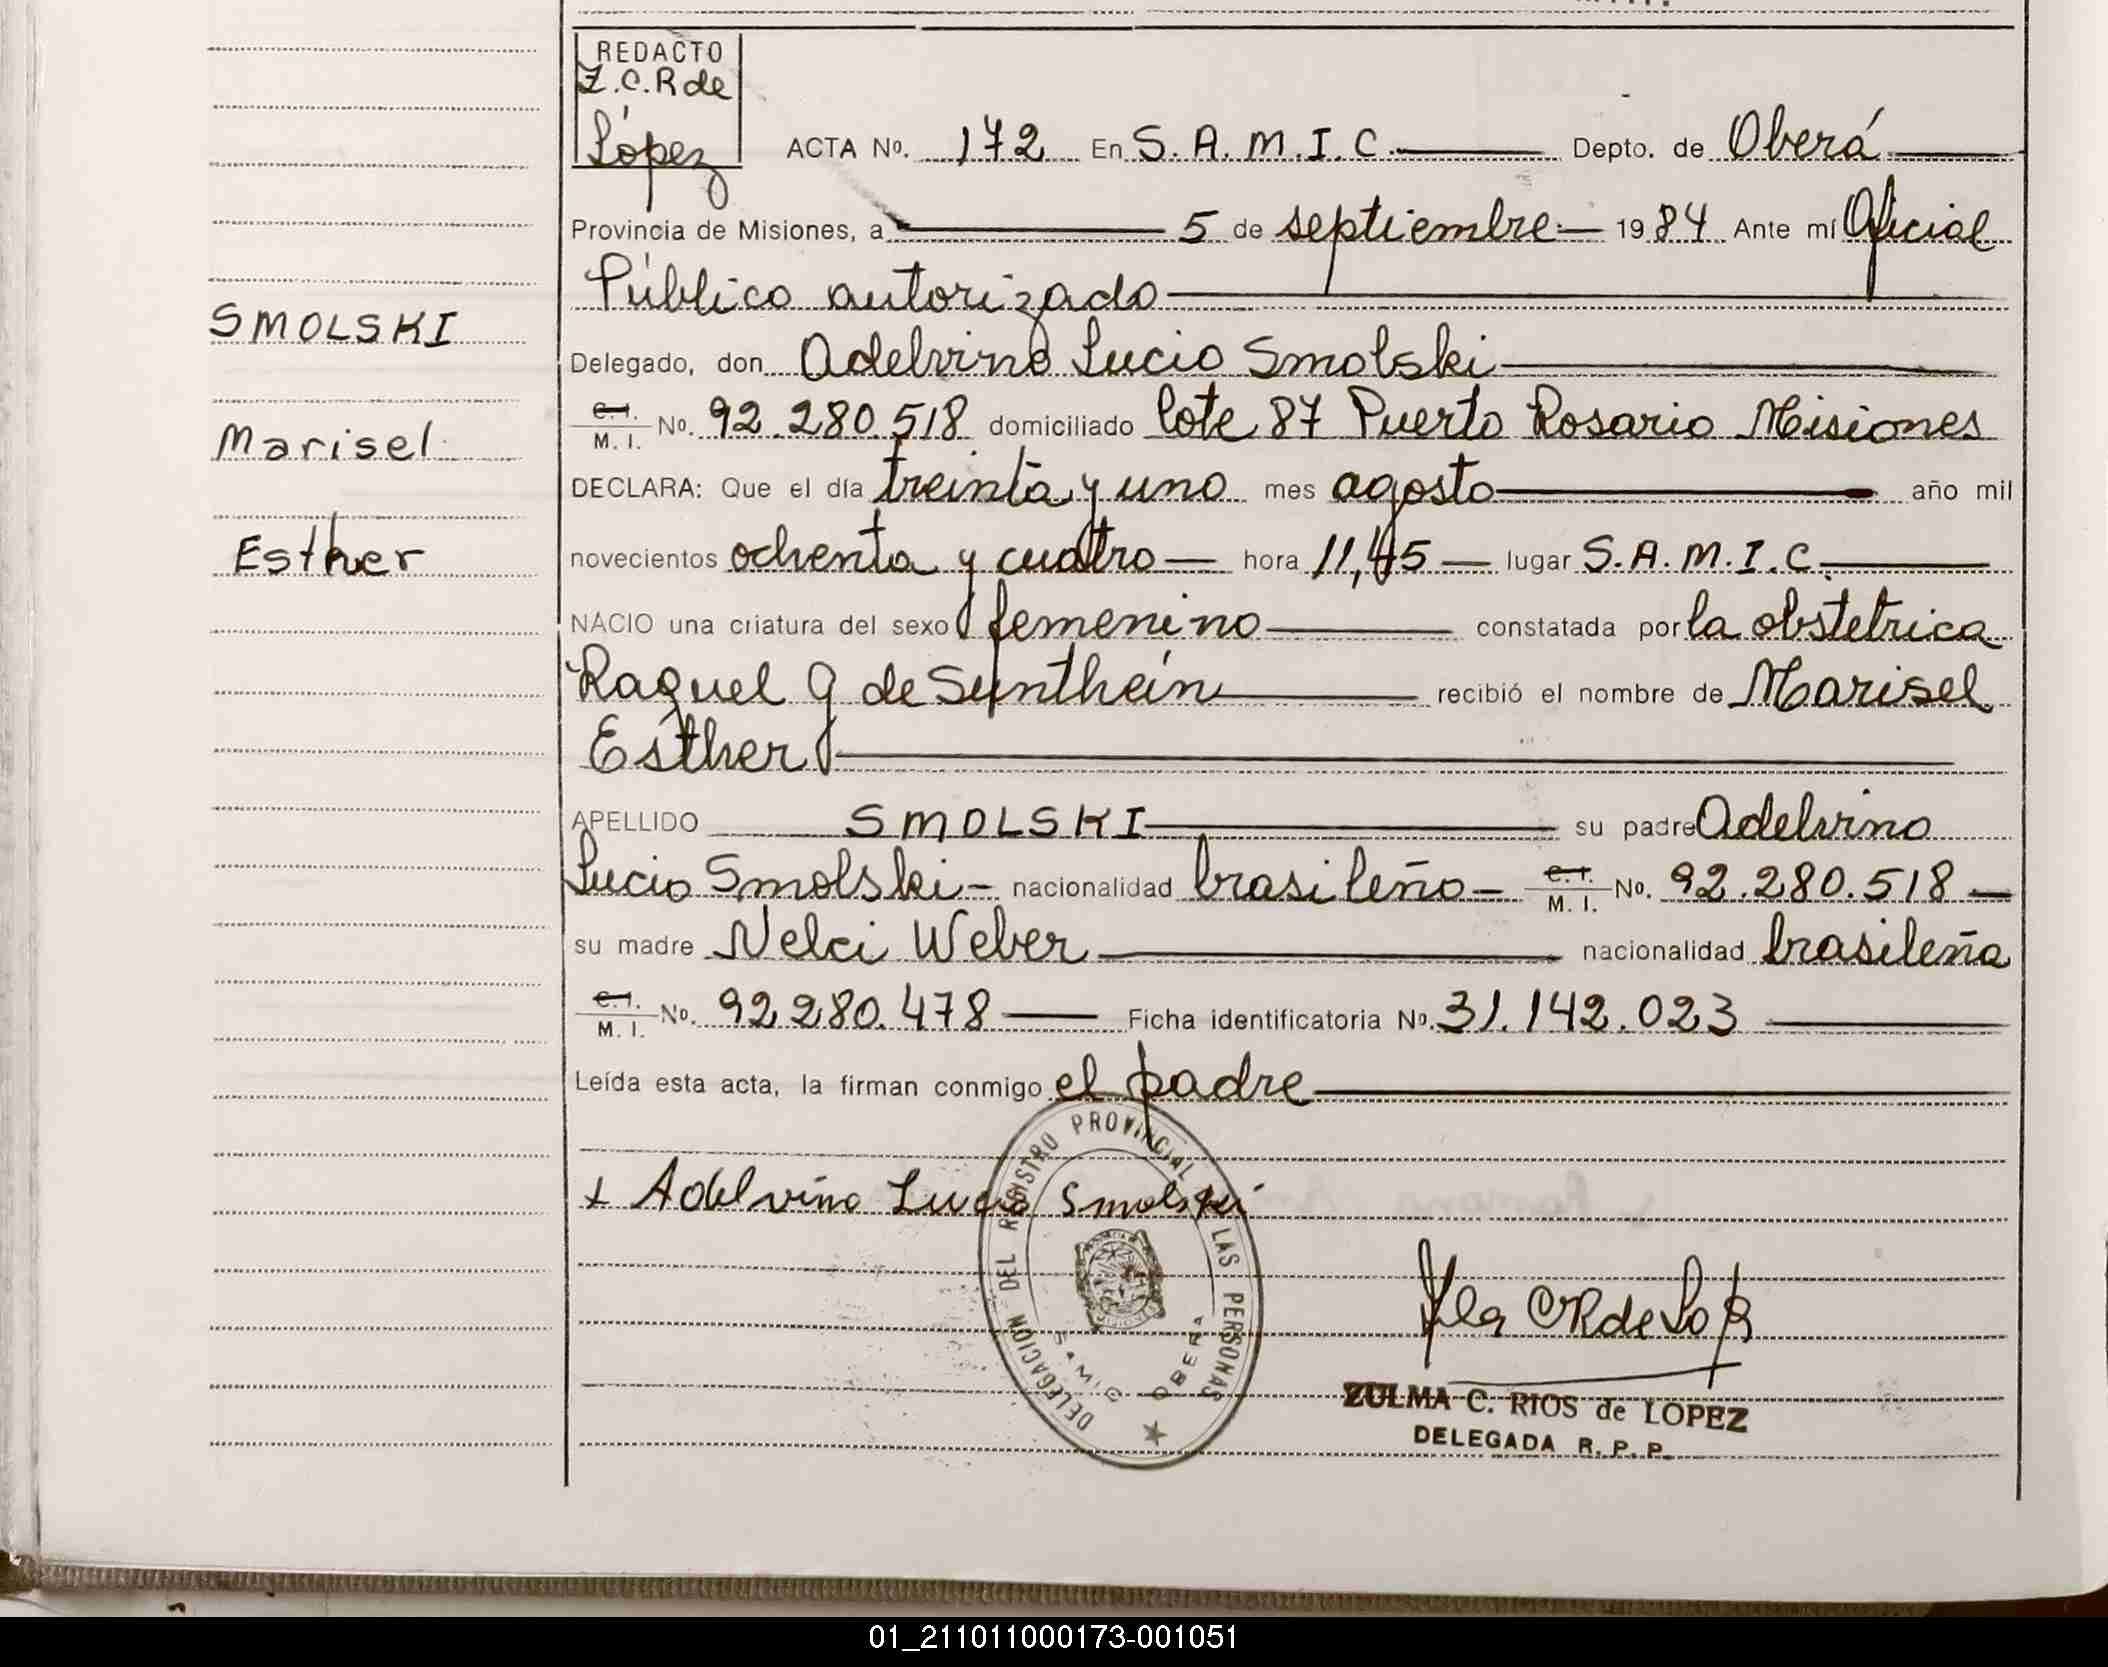 REDACTO
Z.C.R de
López
ACTA No. 172 En S.A.M.I.C. Depto. de Oberá
Provincia de Misiones, a 5 de septiembre 1984 Ante mí Oficial
Público autorizado
Delegado, don Adelvino Lucio Smolski
C.I. M.I. No. 92.280.518 domiciliado lote 87 Puerto Rosario Misiones
DECLARA: Que el día treinta y uno mes agosto año mil
novecientos ochenta y cuatro hora 11,45 lugar S.A.M.I.C.
NACIO una criatura del sexo femenino constatada por la obstetrica
Raquel G de Sunthein recibió el nombre de Marisel
Esther
APELLIDO SMOLSKI su padre Adelvino
Lucio Smolski nacionalidad brasileño C.I. M.I. No. 92.280.518
su madre Nelci Weber nacionalidad brasileña
C.I. M.I. No. 92.280.478 Ficha identificatoria No. 31.142.023
Leída esta acta, la firman conmigo el padre
Adelvino Lucio Smolski
SMOLSKI
Marisel
Esther
DELEGACIÓN DEL REGISTRO PROVINCIAL LAS PERSONAS
SAMIC OBERA
ZULMA C. RIOS de LOPEZ
DELEGADA R.P.P.
01_211011000173-001051